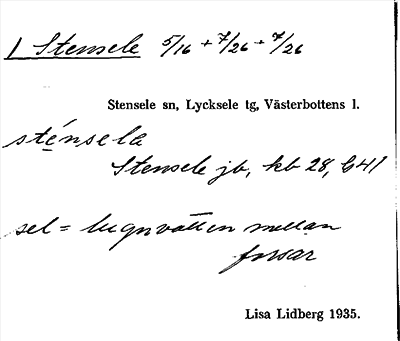 1 Stensele 5/16 + 7/26 + 7/26
Stensele sn, Lycksele tg, Västerbottens l.
sténsela
Stensele jb, kb 28, 641
sel = lugnvatten mellan
forsar
Lisa Lidberg 1935.